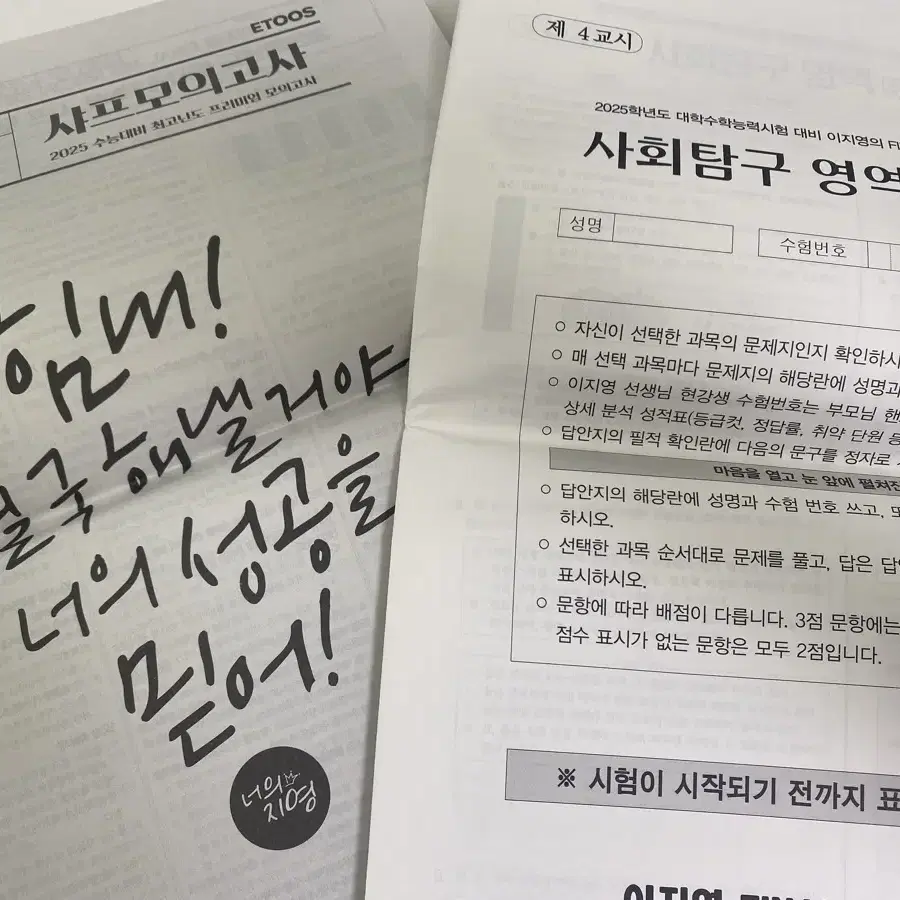 ETOOS
샤프모의고사
2025 수능대비 최고난도 프리미엄 모의고사
힘내!
결국 해낼거야
너의 성공을
믿어!
너의
지영
제 4교시
2025학년도 대학수학능력시험 대비 이지영의 FI
사회탐구 영역
성명
수험번호
○ 자신이 선택한 과목의 문제지인지 확인하시
○ 매 선택 과목마다 문제지의 해당란에 성명과
○ 이지영 선생님 현강생 수험번호는 부모님 핸
상세 분석 성적표(등급컷, 정답률, 취약 단원 등
○ 답안지의 필적 확인란에 다음의 문구를 정자로
마음을 열고 눈 앞에 펼쳐진
○ 답안지의 해당란에 성명과 수험 번호 쓰고, 또
하시오.
○ 선택한 과목 순서대로 문제를 풀고, 답은 답안
표시하시오.
○ 문항에 따라 배점이 다릅니다. 3점 문항에는
점수 표시가 없는 문항은 모두 2점입니다.
※ 시험이 시작되기 전까지 표
이지영